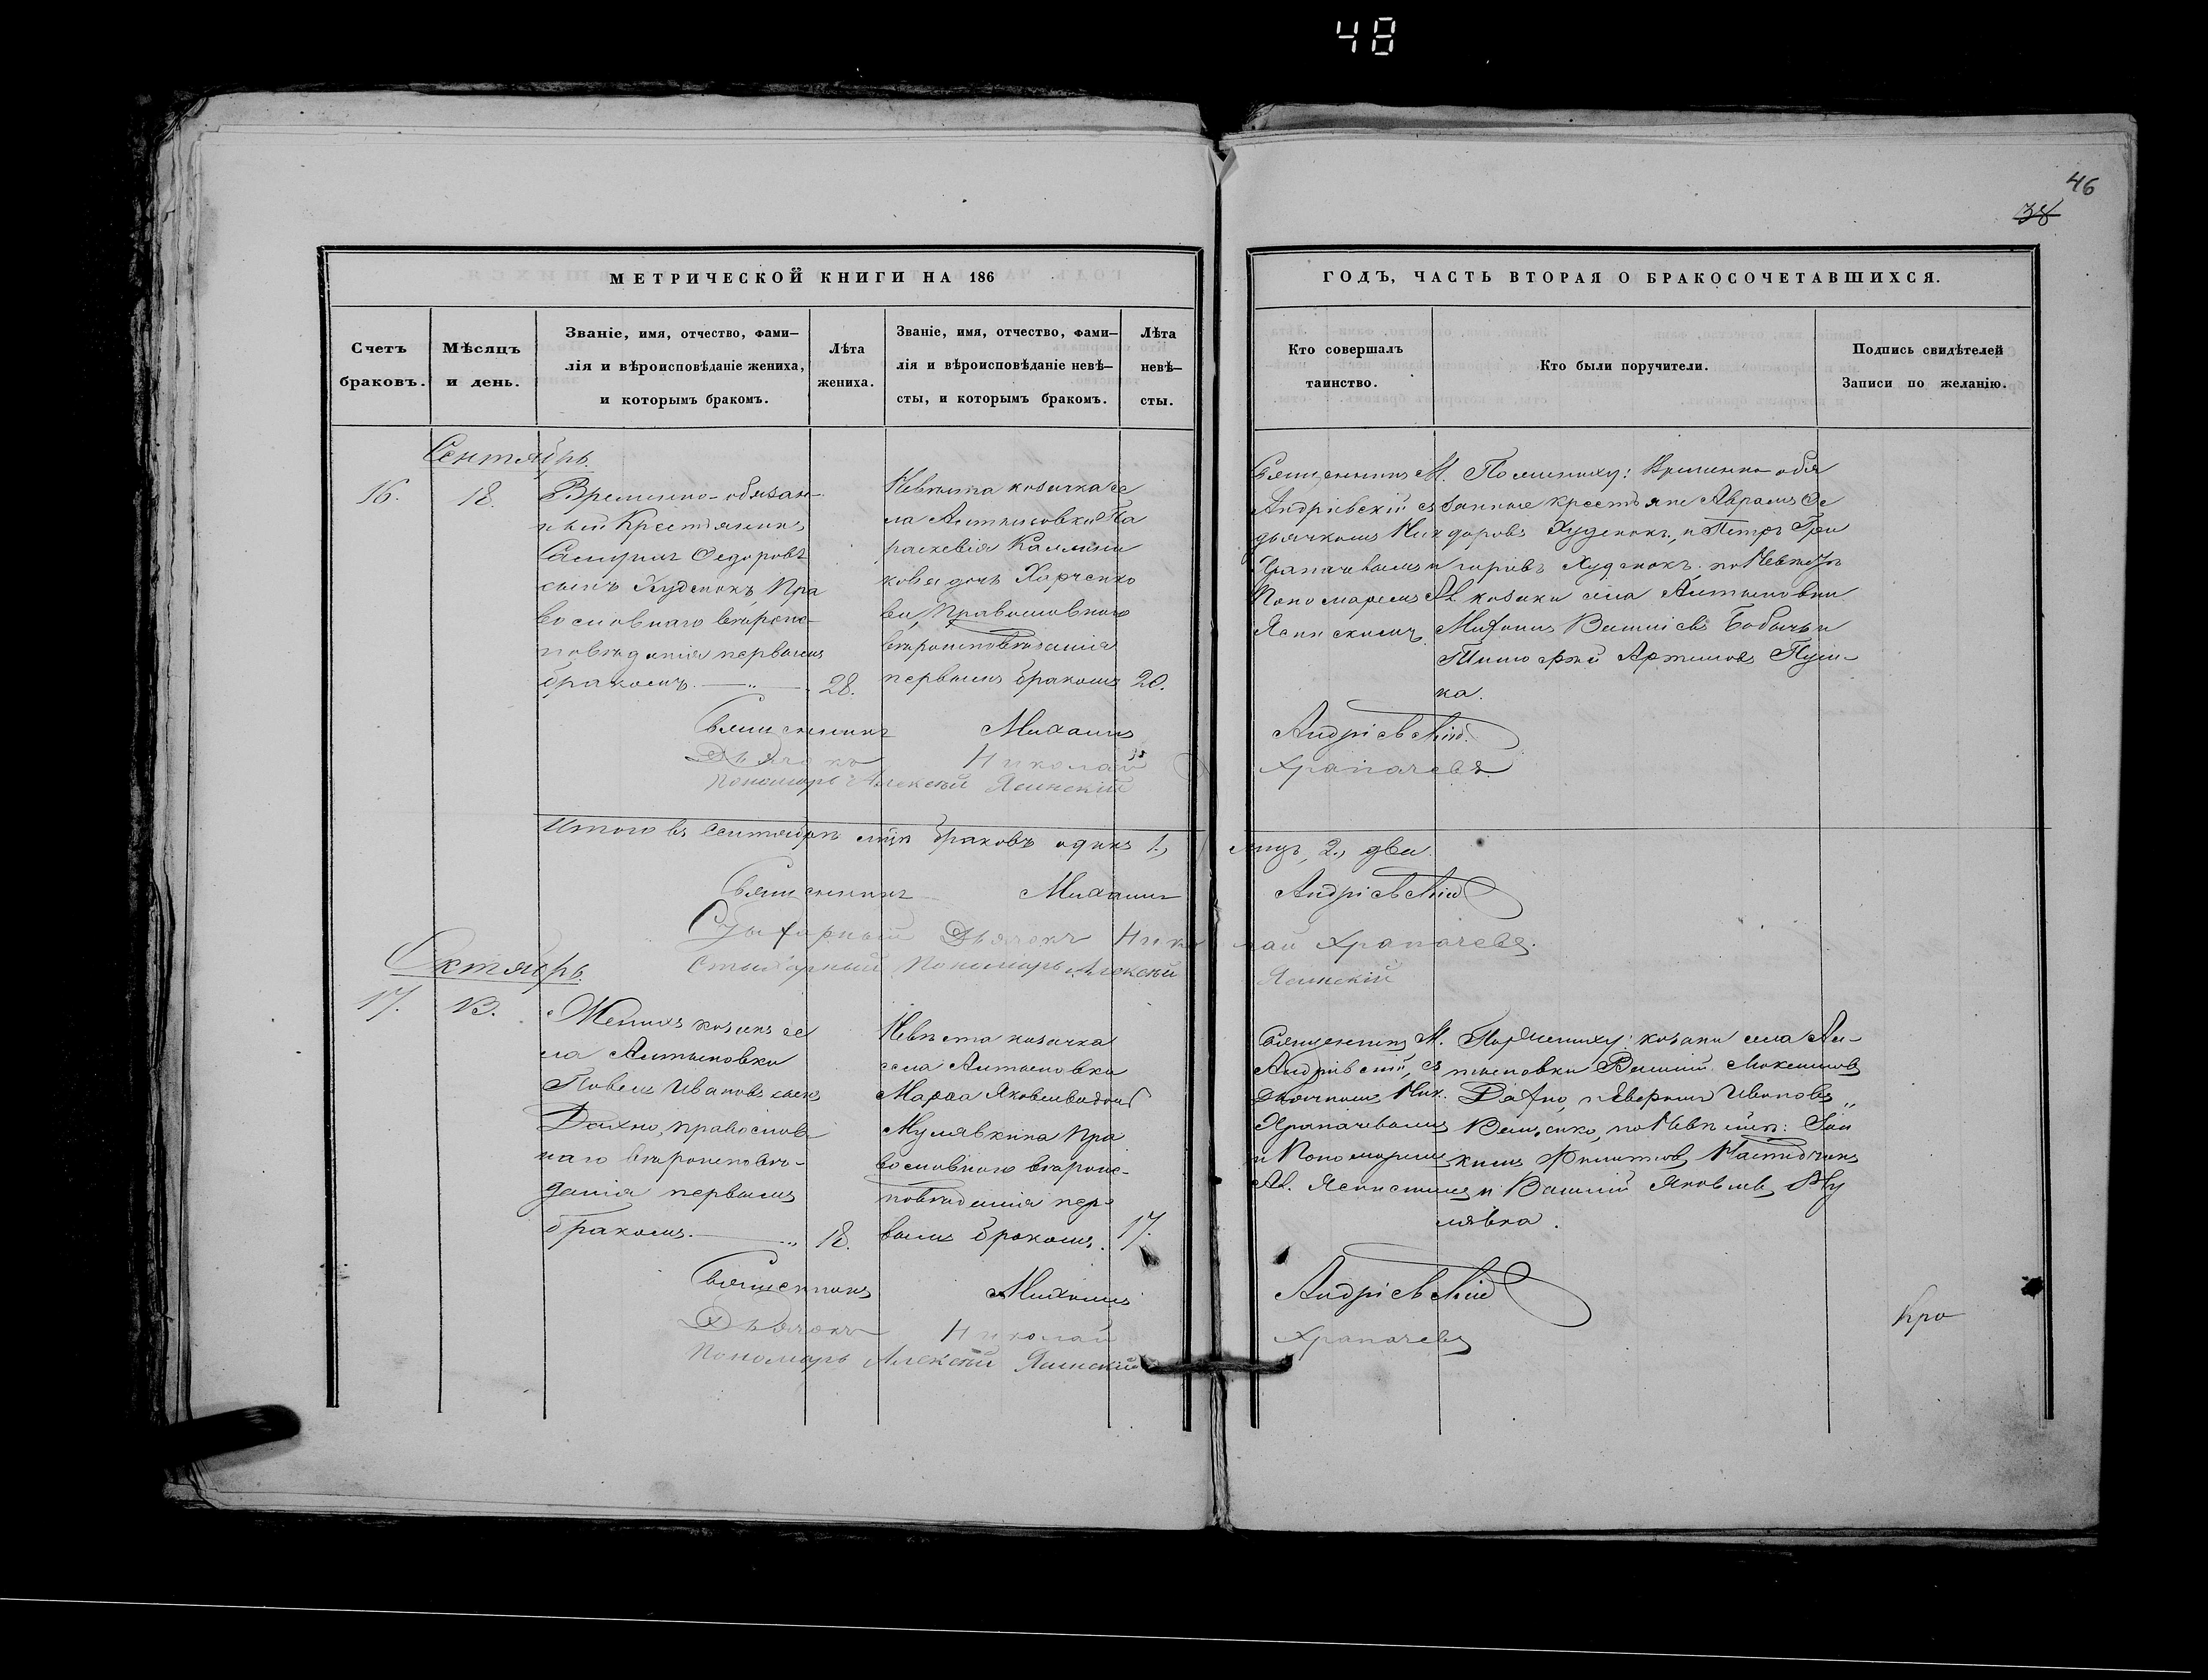 48
46
38
МЕТРИЧЕСКОЙ КНИГИ НА 186
ГОДЪ, ЧАСТЬ ВТОРАЯ О БРАКОСОЧЕТАВШИХСЯ.
Счетъ браковъ.
Мѣсяцъ и день.
Званіе, имя, отчество, фами-
лія и вѣроисповѣданіе жениха,
и которымъ бракомъ.
Лѣта жениха.
Званіе, имя, отчество, фами-
лія и вѣроисповѣданіе невѣ-
сты, и которымъ бракомъ.
Лѣта невѣ-
сты.
Кто совершалъ таинство.
Кто были поручители.
Подпись свидѣтелей
Записи по желанію.
Сентябрь.
16.
18.
Временно-обязан-
ный Крестьянинъ
Федоровъ
сынъ Худенокъ, Пра
вославнаго вѣроис-
повѣданія первымъ
бракомъ.
28.
Невѣста козачка се
ла Алтыновки Па
раскевія Калинни
кова дочь Харченко
ва, Православнаго
вѣроисповѣданія
первымъ бракомъ
20.
Священникъ М.
Андріевскій съ
дьячкомъ Ник.
Храпачевымъ и
Пономаремъ Ал.
Яснскимъ
По жениху: Временно-обя
занные крестьяне Аврамъ Ѳе
доровъ Худенокъ, и Петръ Гри
горіевъ Худенокъ; по Невѣстѣ
козаки села Алтыновки
Бобычъ и
Тимофей Артемовъ
ка.
Священникъ Михаилъ Андріевскій
Дьячокъ Николай Храпачевъ
Пономарь Алексѣй Яснскій
Итого въ Сентябрѣ м̃цѣ браковъ одинъ 1., лицъ, 2., два.
Священникъ Михаилъ Андріевскій
Стихарный Дьячокъ Николай Храпачевъ.
Стихарный Пономарь Алексѣй Яснскій
Октябрь.
17.
13.
Женихъ козакъ се
ла Алтыновки
Павелъ Ивановъ сынъ
Дахно, православ
наго вѣроисповѣ-
данія первымъ
бракомъ.
18.
Невѣста козачка
села Алтыновки
Марѳа Яковлева дочь
Мулявкина Пра
вославнаго вѣроис-
повѣданія пер-
вымъ бракомъ.
17.
Священникъ М.
Андріевскій, съ
Дьячкомъ Ник.
Храпачевымъ
и Пономаремъ
Ал. Яснскимъ
По Жениху: козаки села Ал-
тыновки Василій Максимовъ
Дахно, и Ивановъ
по Невѣстѣ: Іоа
кимъ Филиповъ
и Василій Яковлевъ Му
лявка.
Священникъ Михаилъ Андріевскій
Дьячокъ Николай Храпачевъ
Пономарь Алексѣй Яснскій
Кро